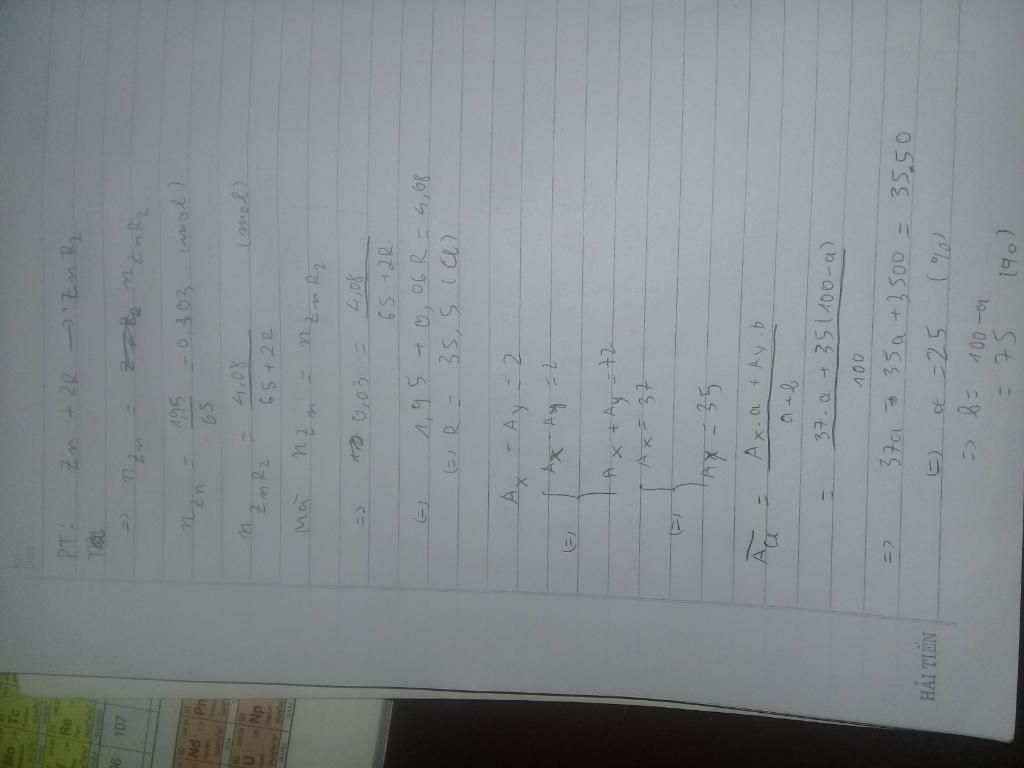 No.
Date
PT: Zn + 2R → ZnR₂
=> n Zn = n ZnR₂
n Zn = 1,95 / 65 = 0,03 (mol)
n ZnR₂ = 4,08 / 65 + 2R (mol)
Mà n Zn = n ZnR₂
=> 0,03 = 4,08 / 65 + 2R
(=) 1,95 + 0,06R = 4,08
(=) R = 35,5 (Cl)
Ax - Ay = 2
(=) { Ax - Ay = 2
Ax + Ay = 72
(=) { Ax = 37
Ay = 35
A̅ Cl = Ax.a + Ay.b / a+b
= 37.a + 35(100-a) / 100
=> 37a - 35a + 3500 = 35,50
(=) a = 25 (%)
=> b = 100-a
= 75 (%)
HẢI TIẾN
Mo Tc
Re
107
Nd Pm
U Np